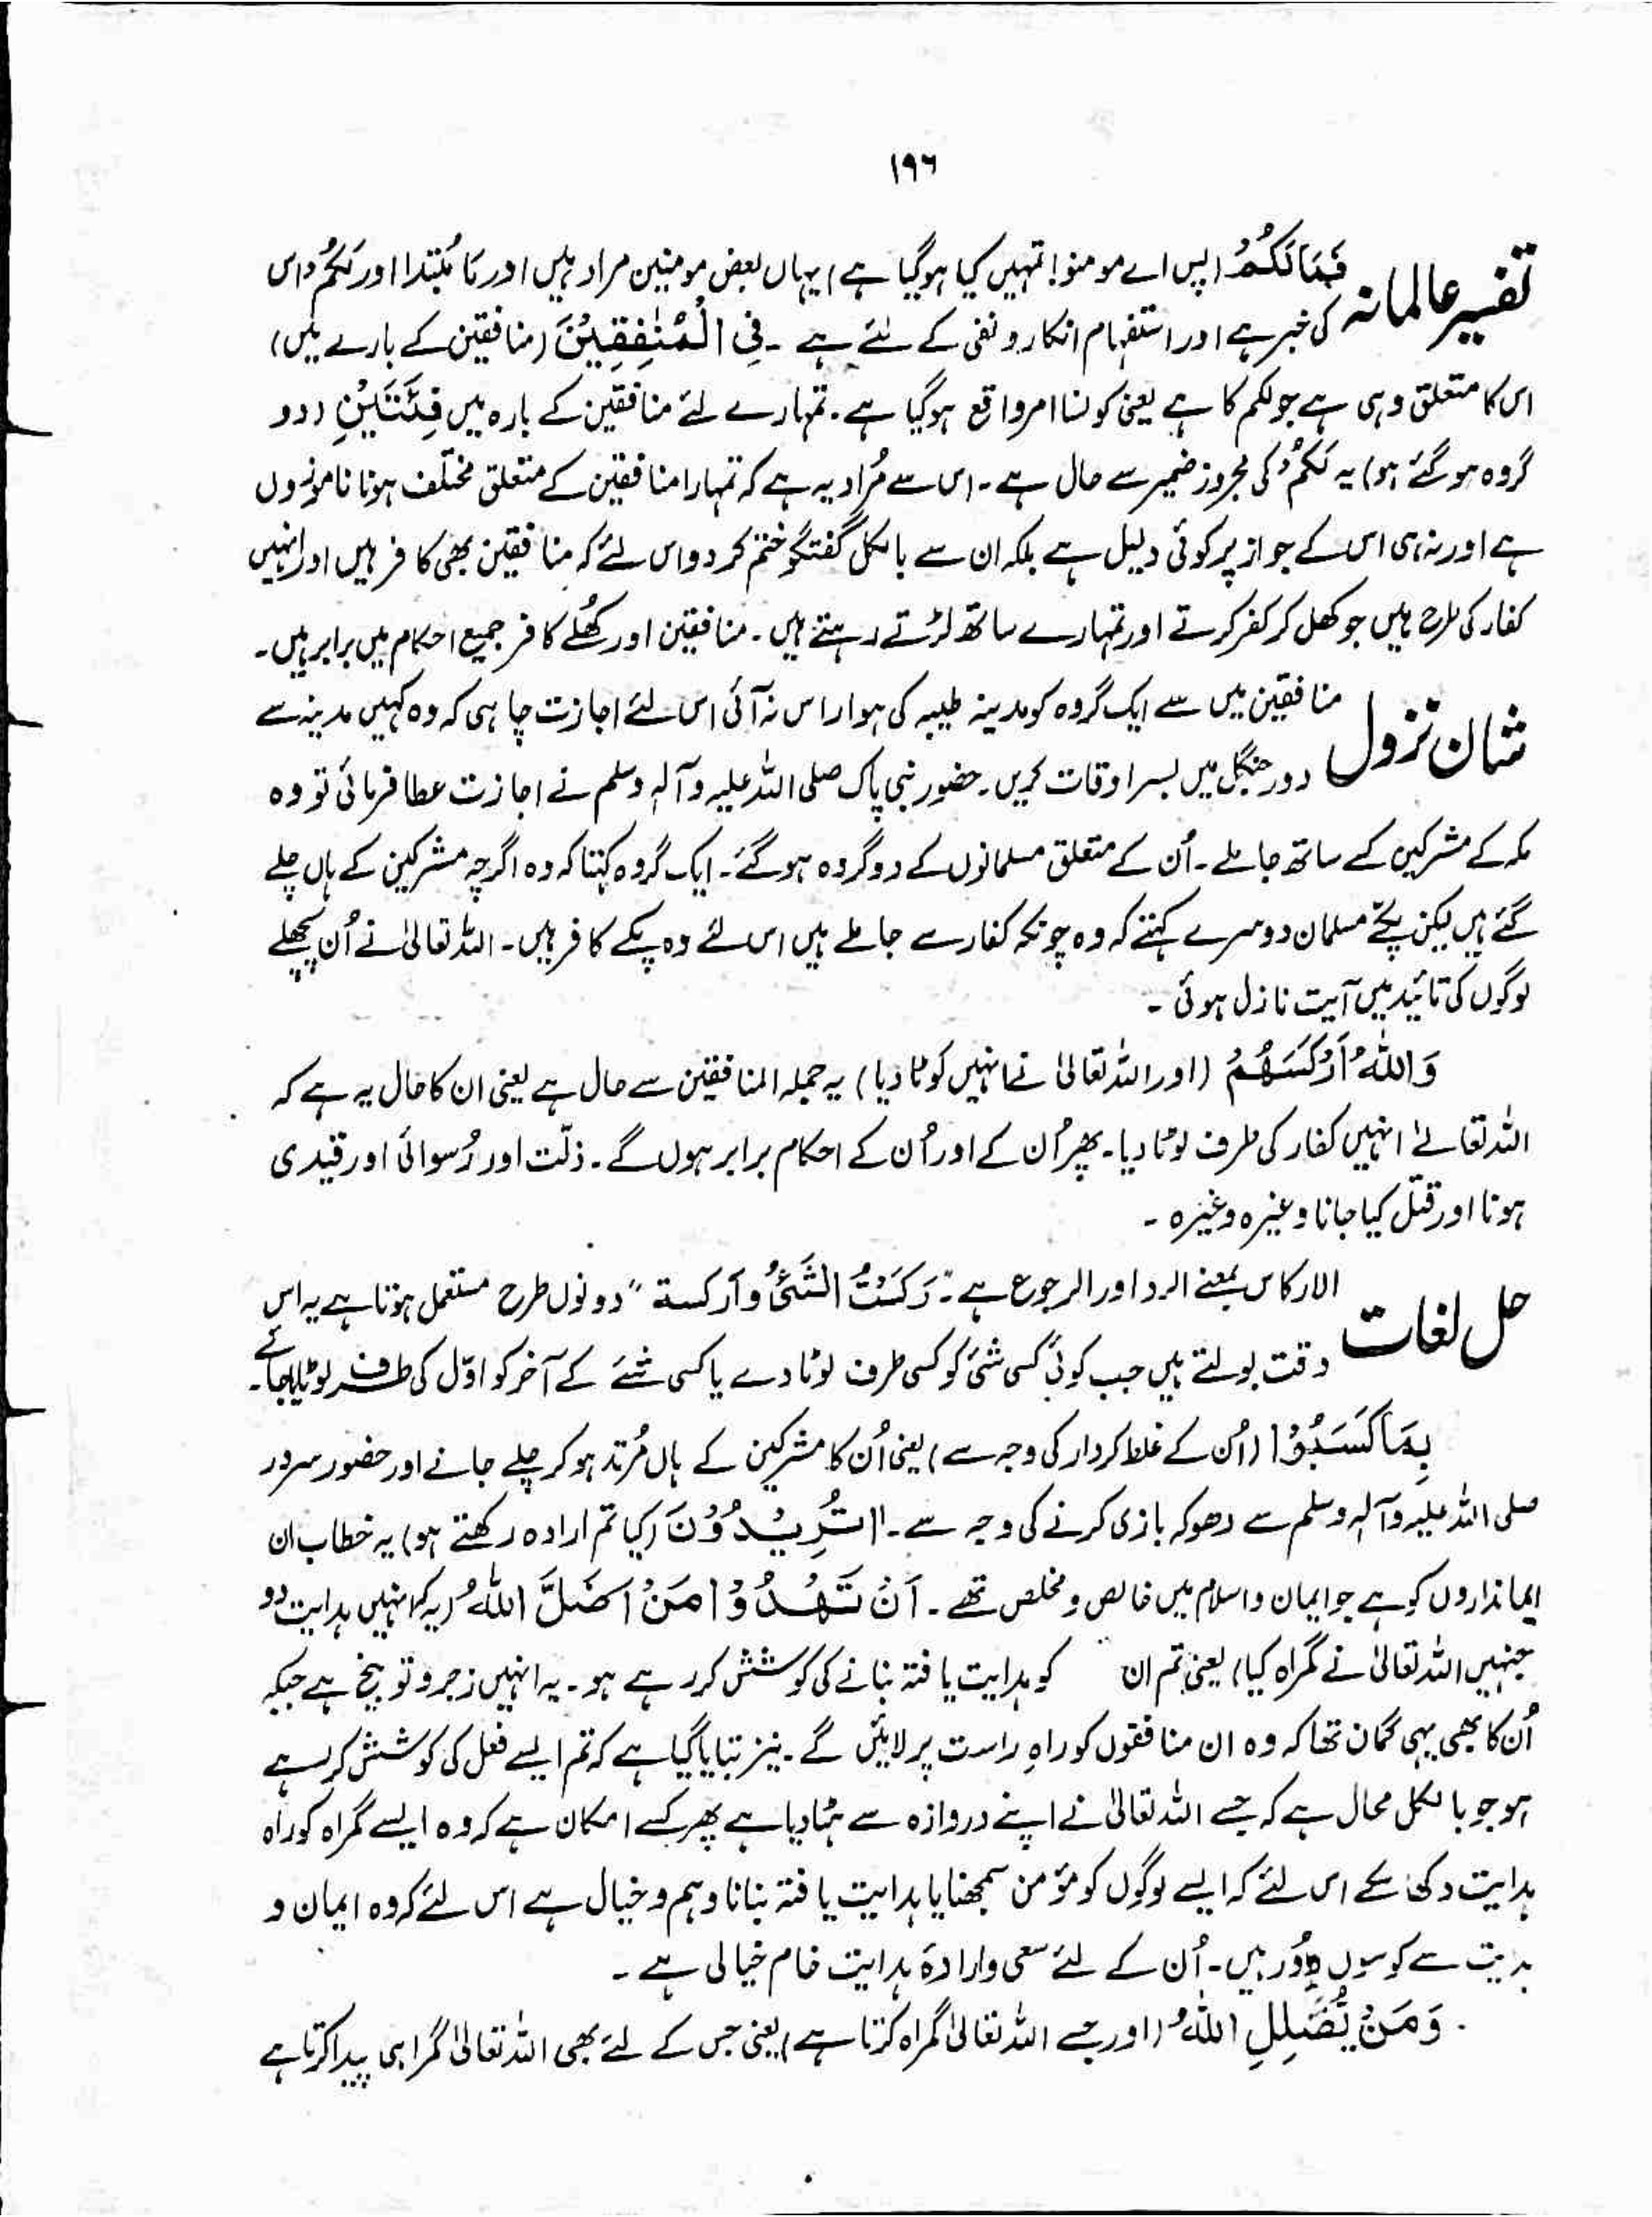 ۱۹۶
تفسیر عالمانہ فَمَا لَكُمْ (پس اے مومنو! تمہیں کیا ہوگیا ہے) یہاں بعض مومنین مراد ہیں اور مَا مُبتدا اور لَكُمْ اس
کی خبر ہے اور استفہام انکار و نفی کے لئے ہے ۔ فِی الْمُنٰفِقِیْنَ (منافقین کے بارے میں)
اس کا متعلق وہی ہے جو لکم کا ہے یعنی کونسا امر واقع ہوگیا ہے۔ تمہارے لئے منافقین کے بارہ میں فِئَتَیْنِ (دو
گروہ ہوگئے ہو) یہ لَكُمْ کی مجرور ضمیر سے حال ہے ۔ اس سے مُراد یہ ہے کہ تمہارا منافقین کے متعلق مختلف ہونا ناموزوں
ہے اور نہ ہی اس کے جواز پر کوئی دلیل ہے بلکہ ان سے بالکل گفتگو ختم کر دو اس لئے کہ منافقین بھی کافر ہیں اور انہیں
کفار کی طرح ہیں جو کھل کر کفر کرتے اور تمہارے ساتھ لڑتے رہتے ہیں ۔ منافقین اور کھُلے کافر جمیع احکام میں برابر ہیں۔
شان نزول منافقین میں سے ایک گروہ کو مدینہ طیبہ کی ہوا راس نہ آئی اس لئے اجازت چاہی کہ وہ کہیں مدینہ سے
دور جنگل میں بسر اوقات کریں۔ حضور نبی پاک صلی اللہ علیہ وآلہٖ وسلم نے اجازت عطا فرمائی تو وہ
مکہ کے مشرکین کے ساتھ جا ملے ۔ اُن کے متعلق مسلمانوں کے دو گروہ ہوگئے۔ ایک گروہ کہتا کہ وہ اگرچہ مشرکین کے ہاں چلے
گئے ہیں لیکن پکّے مسلمان دوسرے کہتے کہ وہ چونکہ کفار سے جا ملے ہیں اس لئے وہ پکے کافر ہیں ۔ اللہ تعالیٰ نے اُن پچھلے
لوگوں کی تائید میں آیت نازل ہوئی ۔
وَاللّٰهُ اَرْكَسَهُمْ (اور اللہ تعالیٰ نے انہیں لوٹا دیا) یہ جملہ المنافقین سے حال ہے یعنی ان کا حال یہ ہے کہ
اللہ تعالےٰ انہیں کفار کی طرف لوٹا دیا۔ پھر اُن کے اور اُن کے احکام برابر ہوں گے۔ ذلّت اور رُسوائی اور قیدی
ہونا اور قتل کیا جانا وغیرہ وغیرہ ۔
حل لغات الارکاس بمعنے الرد اور الرجوع ہے ۔ "رَكَسْتُ الشَّیْءُ وَأركسة" دونوں طرح مستعمل ہوتا ہے یہ اس
وقت بولتے ہیں جب کوئی کسی شئ کو کسی طرف لوٹا دے یا کسی شئے کے آخر کو اوّل کی طرف لوٹایا جائے۔
بِمَا كَسَبُوْا (اُن کے غلط کردار کی وجہ سے) یعنی اُن کا مشرکین کے ہاں مُرتد ہو کر چلے جانے اور حضور سرور
صلی اللہ علیہ وآلہٖ وسلم سے دھوکہ بازی کرنے کی وجہ سے۔ اَتُرِیْدُوْنَ (کیا تم ارادہ رکھتے ہو) یہ خطاب ان
ایمانداروں کو ہے جو ایمان و اسلام میں خالص و مخلص تھے ۔ اَنْ تَهْدُوْا مَنْ اَضَلَّ اللّٰهُ (یہ کہ انہیں ہدایت دو
جنہیں اللہ تعالیٰ نے گمراہ کیا) یعنی تم ان کو ہدایت یافتہ بنانے کی کوشش کر رہے ہو۔ یہ انہیں زجر و توبیخ ہے جبکہ
اُن کا بھی یہی گمان تھا کہ وہ ان منافقوں کو راہِ راست پر لائیں گے ۔ نیز بتایا گیا ہے کہ تم ایسے فعل کی کوشش کر رہے
ہو جو بالکل محال ہے کہ جسے اللہ تعالیٰ نے اپنے دروازہ سے ہٹا دیا ہے پھر کسے امکان ہے کہ وہ ایسے گمراہ کو راہ
ہدایت دکھا سکے اس لئے کہ ایسے لوگوں کو مؤمن سمجھنا یا ہدایت یافتہ بنانا وہم و خیال ہے اس لئے کہ وہ ایمان و
ہدیت سے کوسوں دُور ہیں ۔ اُن کے لئے سعی و ارادہ ہدایت خام خیالی ہے ۔
وَمَنْ یُّضْلِلِ اللّٰهُ (اور جسے اللہ تعالیٰ گمراہ کرتا ہے) یعنی جس کے لئے بھی اللہ تعالیٰ گمراہی پیدا کرتا ہے